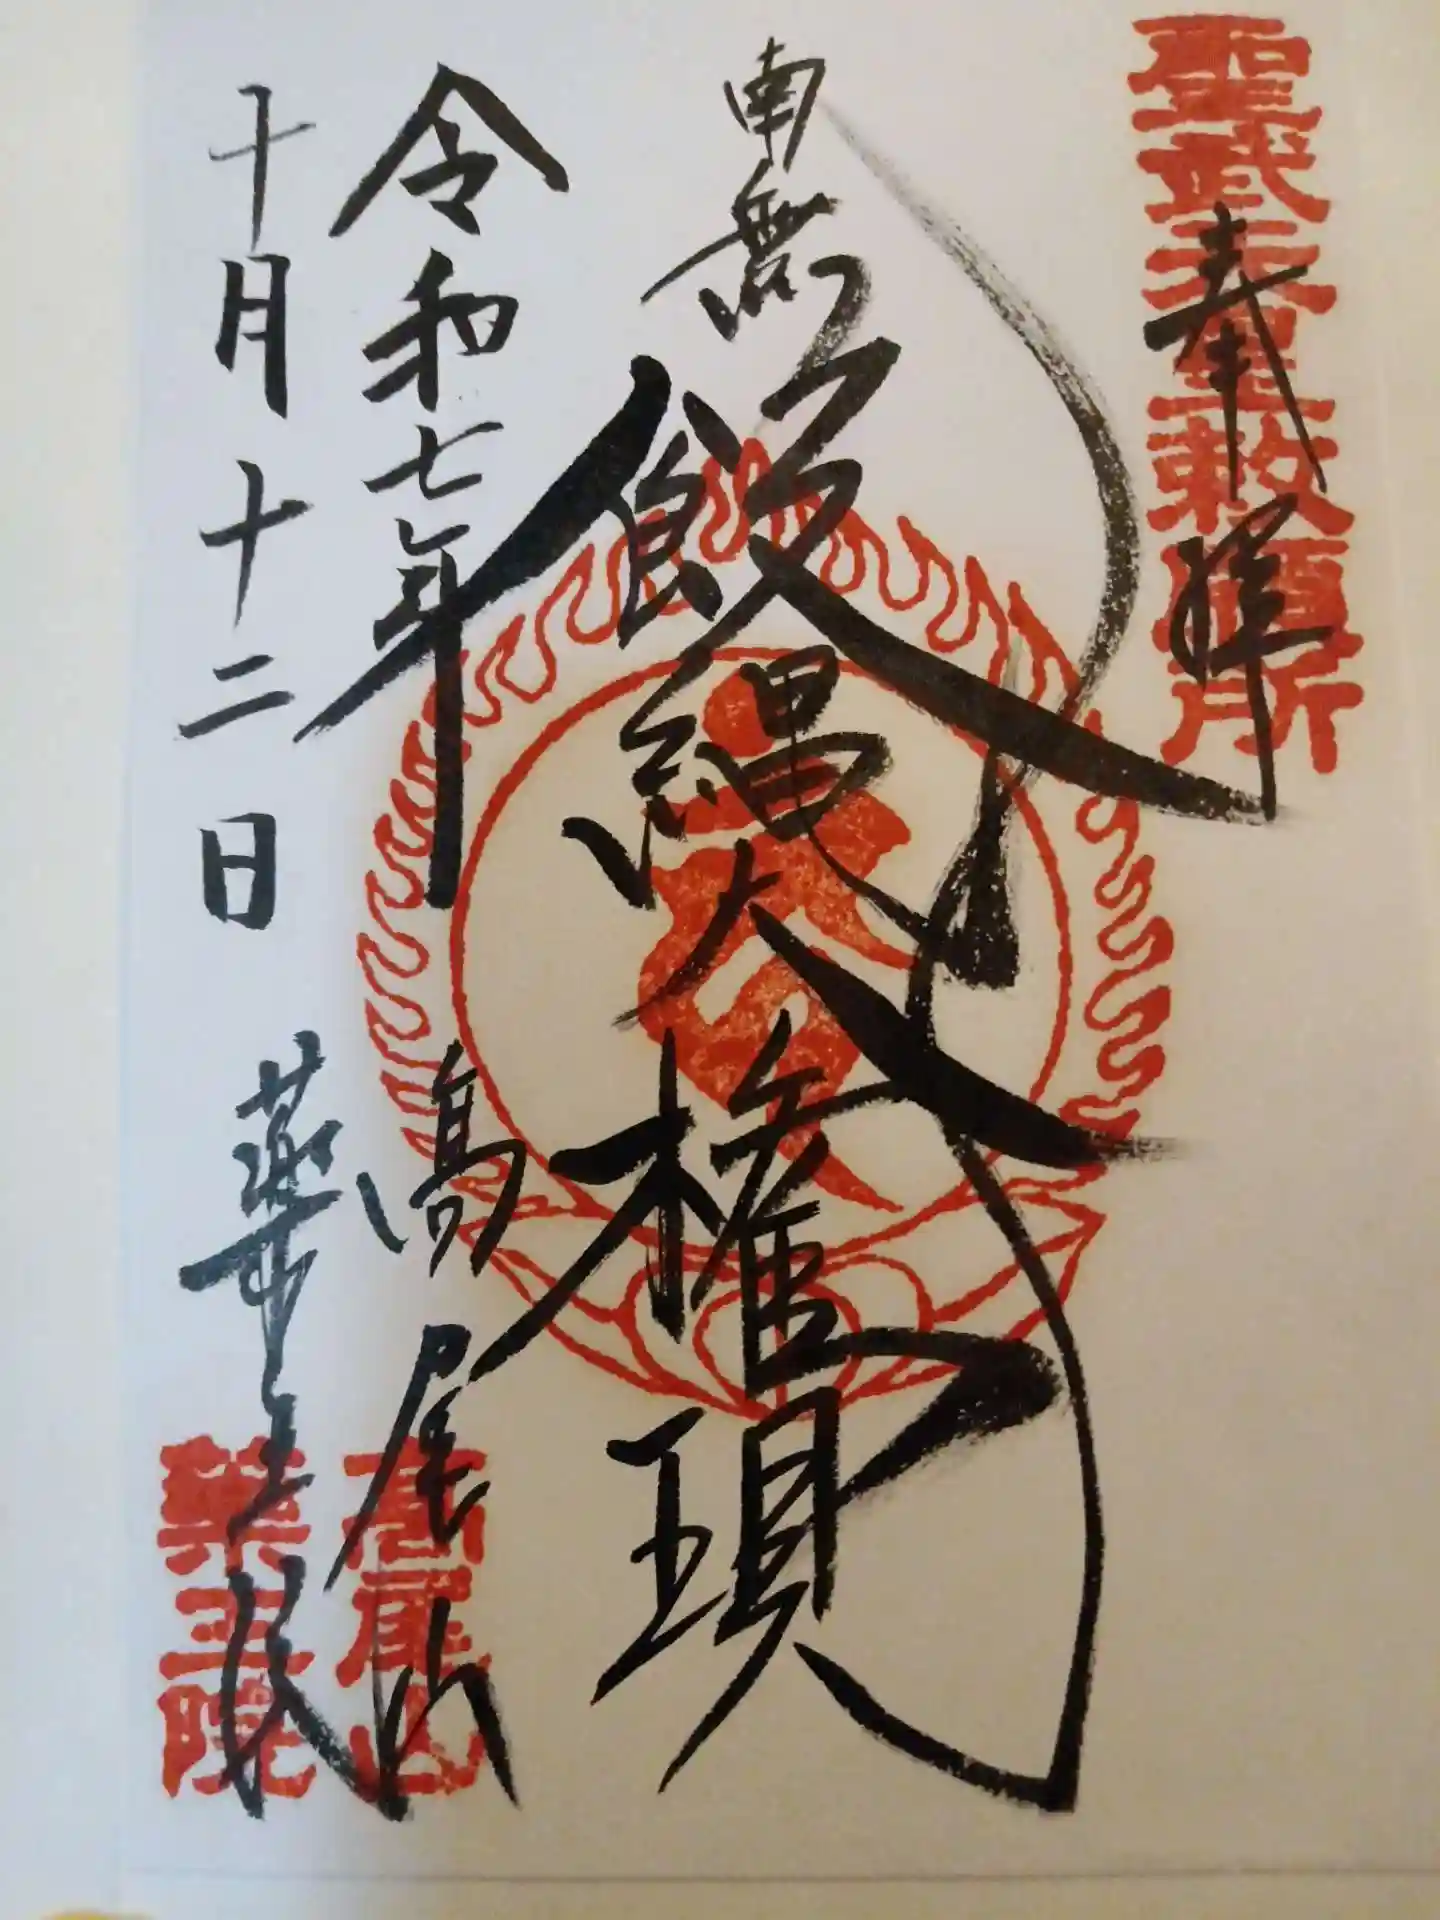 聖武天皇敕願所
奉拝
南無
飯縄大権現
令和七年
十月十二日
高尾山
薬王院
高尾山
薬王院